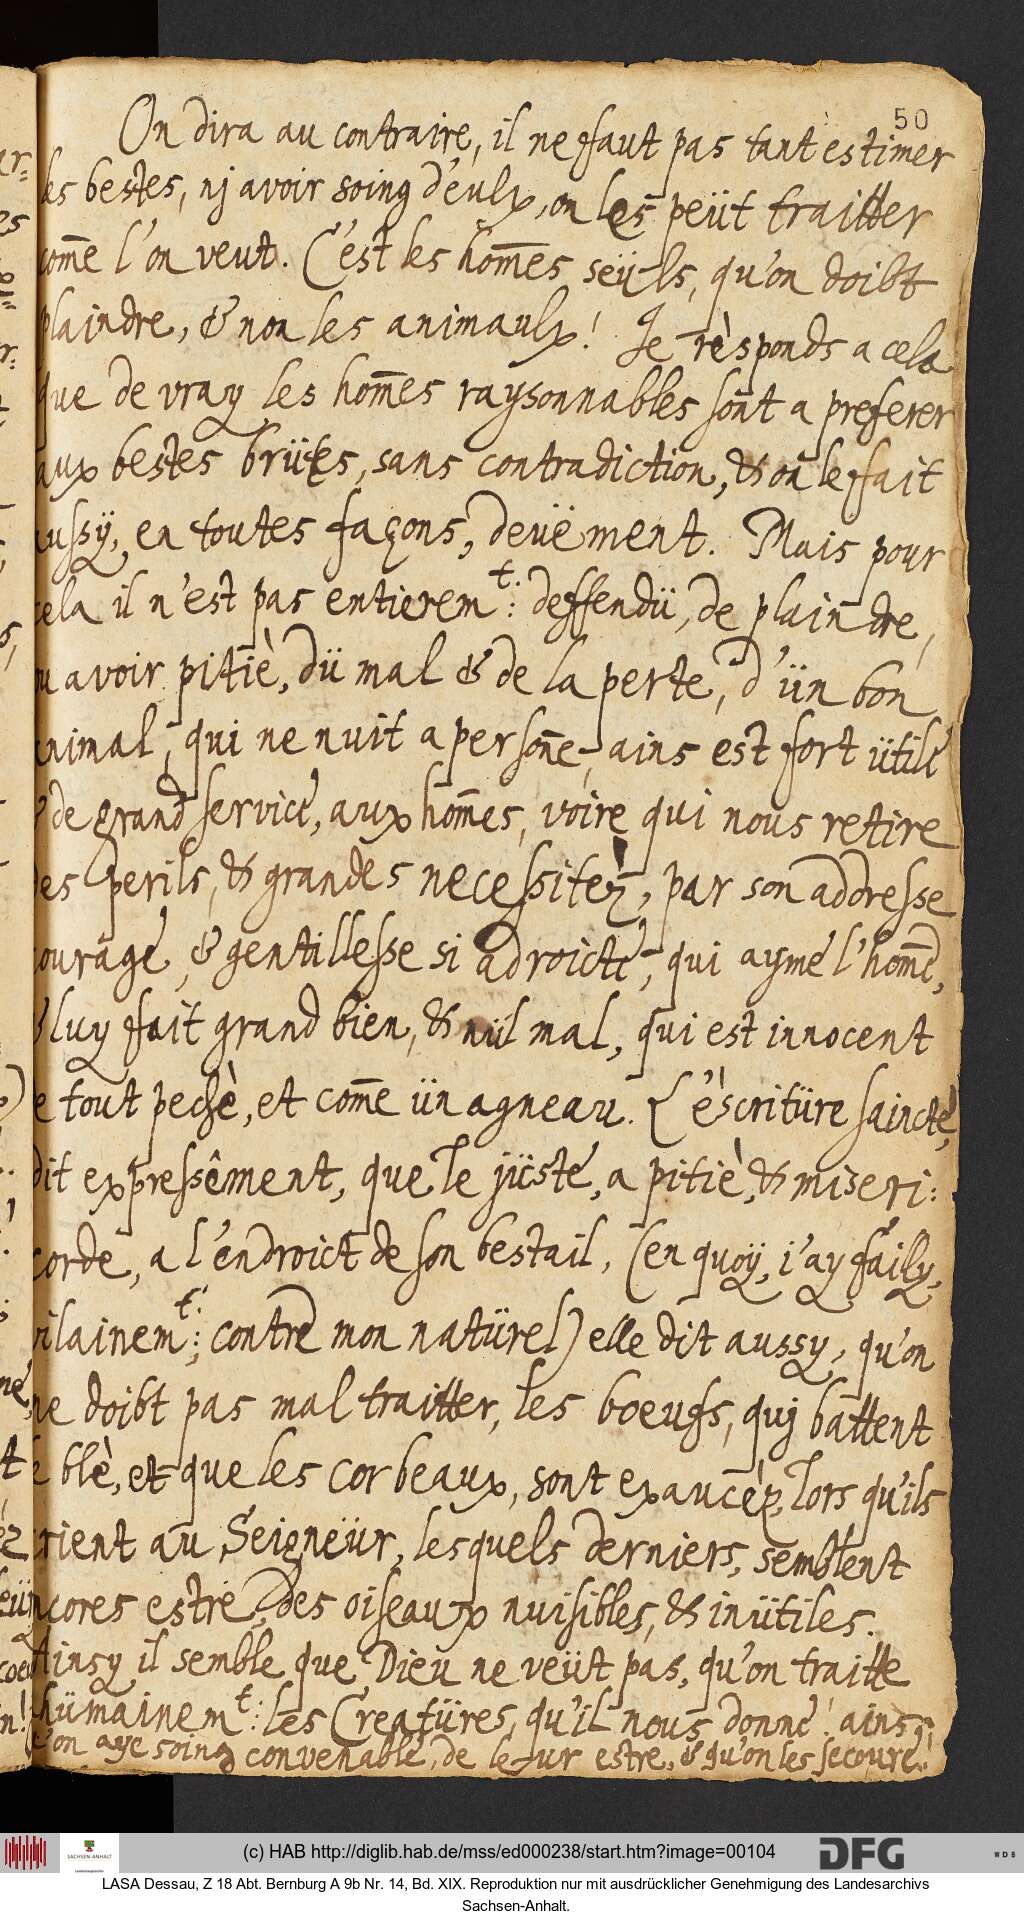 50
On dira au contraire, il ne ffaut pas tant estimer
les bestes, nj avoir soing d'eulx, on les peüt traitter
come̅ l'on veut. C'est les hom̅es seüls, qu'on doibt
plaindre, & non les animaulx! Je rèsponds a cela
que de vray les hom̅es raysonnables sont a preferer
aux bestes brütes, sans contradiction, & on le ffait
aussÿ, en toutes façons, deüëment. Mais pour
cela il n'est pas entierem^t: deffendü, de plaindre,
ou avoir pitiè, dü mal & de la perte, d'ün bon
animal, qui ne nuit a person̅e, ains est fort ütile
& de grand service, aux hom̅es, voire qui nous retire
des perils, & grandes necessitèz, par son addresse
courage, & gentillesse si adroicte, qui ayme l'hom̅e,
& luy fait grand bien, & nül mal, qui est innocent
de tout pechè, et com̅e ün agneau. L'èscritüre saincte,
dit expressêment, que le jüste, a pitiè, & miseri:
corde, a l'endroict de son bestail, (en quoÿ, i'ay faily,
vilainem^t:; contre mon natürel) elle dit aussy, qu'on
ne doibt pas mal traitter, les boeufs, quj battent
le blè, et que les corbeaux, sont exaucèz, lors qu'ils
crient au Seigneür, lesquels derniers, semblent
encores estre, des oiseaux nuisibles, & inütiles.
Ainsy il semble que Dieu ne veüt pas, qu'on traitte
hümainem^t: les Creatüres, qu'il nous donne! ains q̅
l'on aye soing convenable, de leur estre, & qu'on les secoure.
(c) HAB http://diglib.hab.de/mss/ed000238/start.htm?image=00104
SACHSEN-ANHALT
DFG
WDB
LASA Dessau, Z 18 Abt. Bernburg A 9b Nr. 14, Bd. XIX. Reproduktion nur mit ausdrücklicher Genehmigung des Landesarchivs
Sachsen-Anhalt.